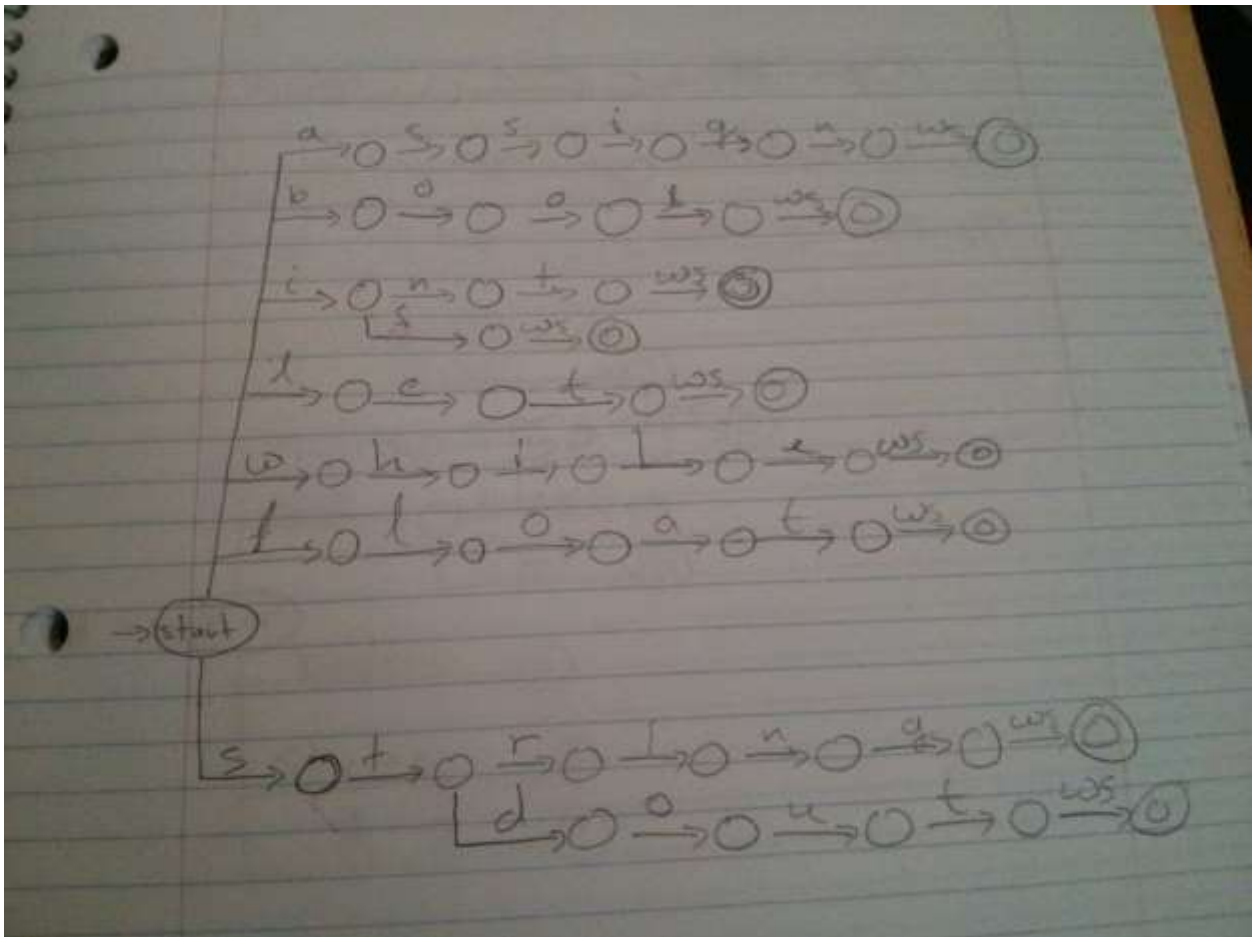 a s s i g n ws
b o o l ws
i n t ws
s ws
l e t ws
w h i l e ws
f l o a t ws
start
s t r i n g ws
d o u t ws